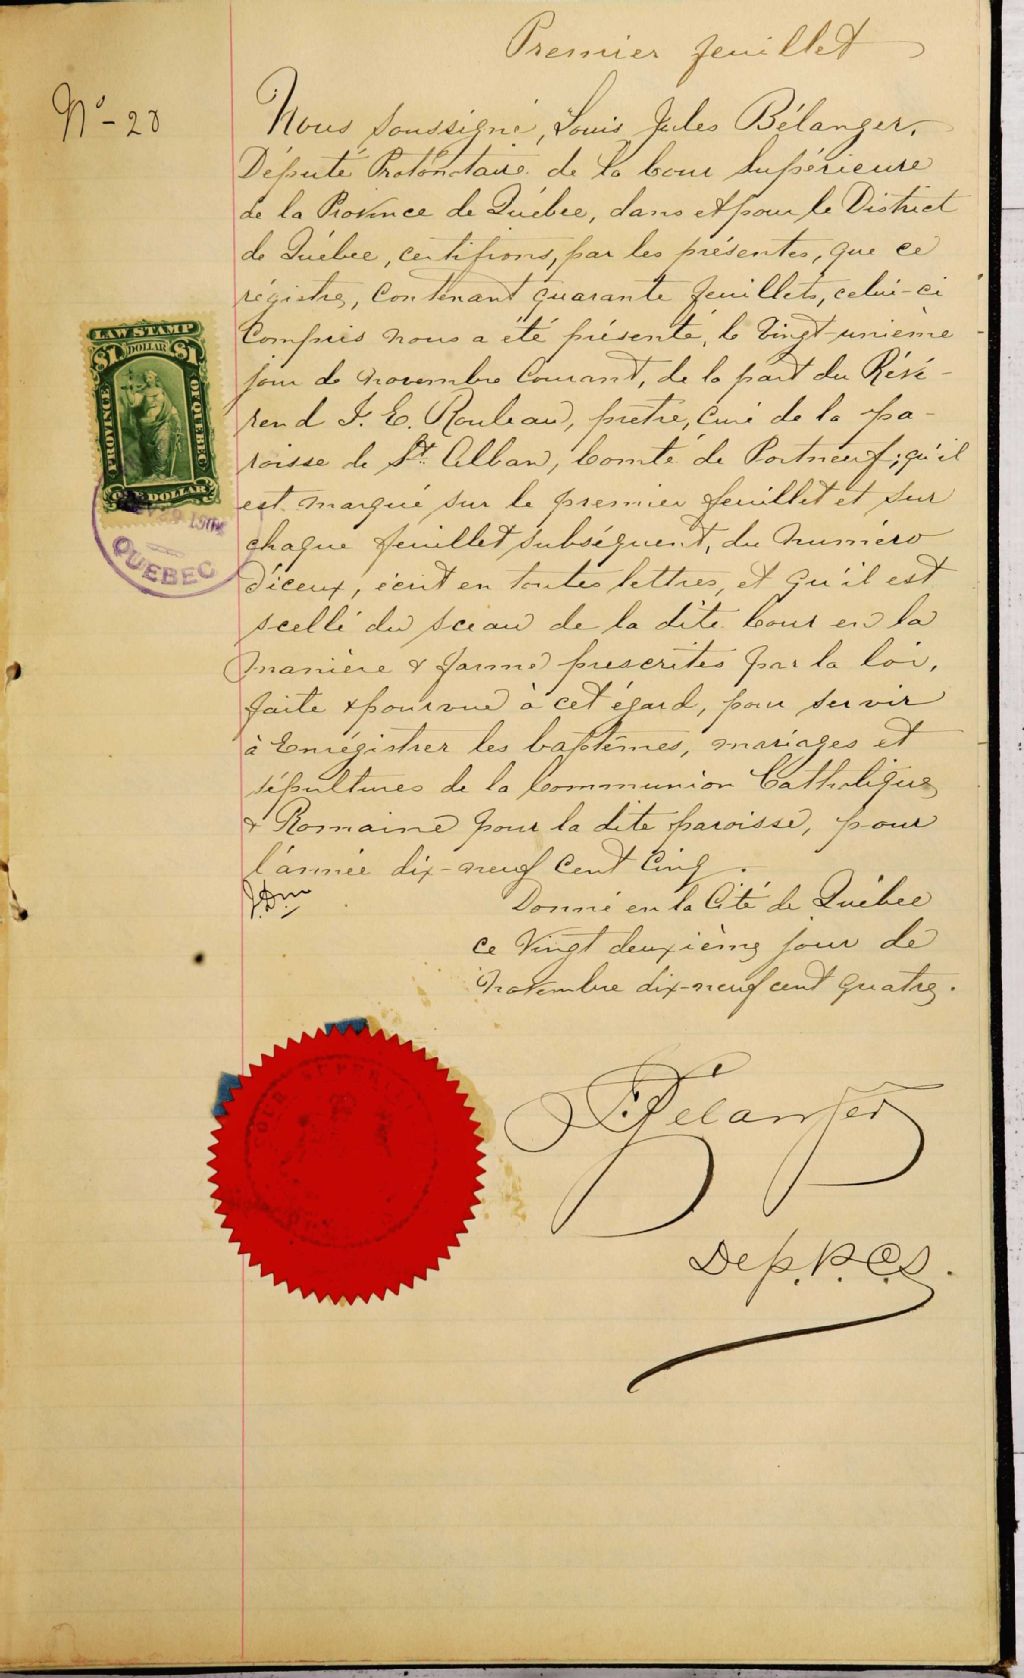 Premier feuillet
Nº - 20
Nous soussigné, Louis Jules Bélanger,
Député Protonotaire de la Cour Supérieure
de la Province de Québec, dans et pour le District
de Québec, certifions, par les présentes, que ce
régistre, contenant quarante feuillets, celui-ci
compris nous a été présenté, le vingt-unième
jour de novembre courant, de la part du Révé-
rend J. E. Rouleau, prêtre, curé de la pa-
roisse de St. Alban, Comté de Portneuf; qu'il
est marqué sur le premier feuillet et sur
chaque feuillet subséquent, du numéro
d'iceux, écrit en toutes lettres, et qu'il est
scellé du sceau de la dite Cour en la
manière & forme prescrites par la loi,
faite & pourvue à cet égard, pour servir
à Enrégistrer les baptêmes, mariages et
sépultures de la Communion Catholique
& Romaine pour la dite paroisse, pour
l'année dix-neuf cent cinq.
Donné en la Cité de Québec
ce vingt deuxième jour de
novembre dix-neuf cent quatre.
Bélanger
Dep. P. C. S.
LAW STAMP
$1 DOLLAR $1
PROVINCE
OF QUEBEC
ONE DOLLAR
QUEBEC
COUR SUPERIEURE